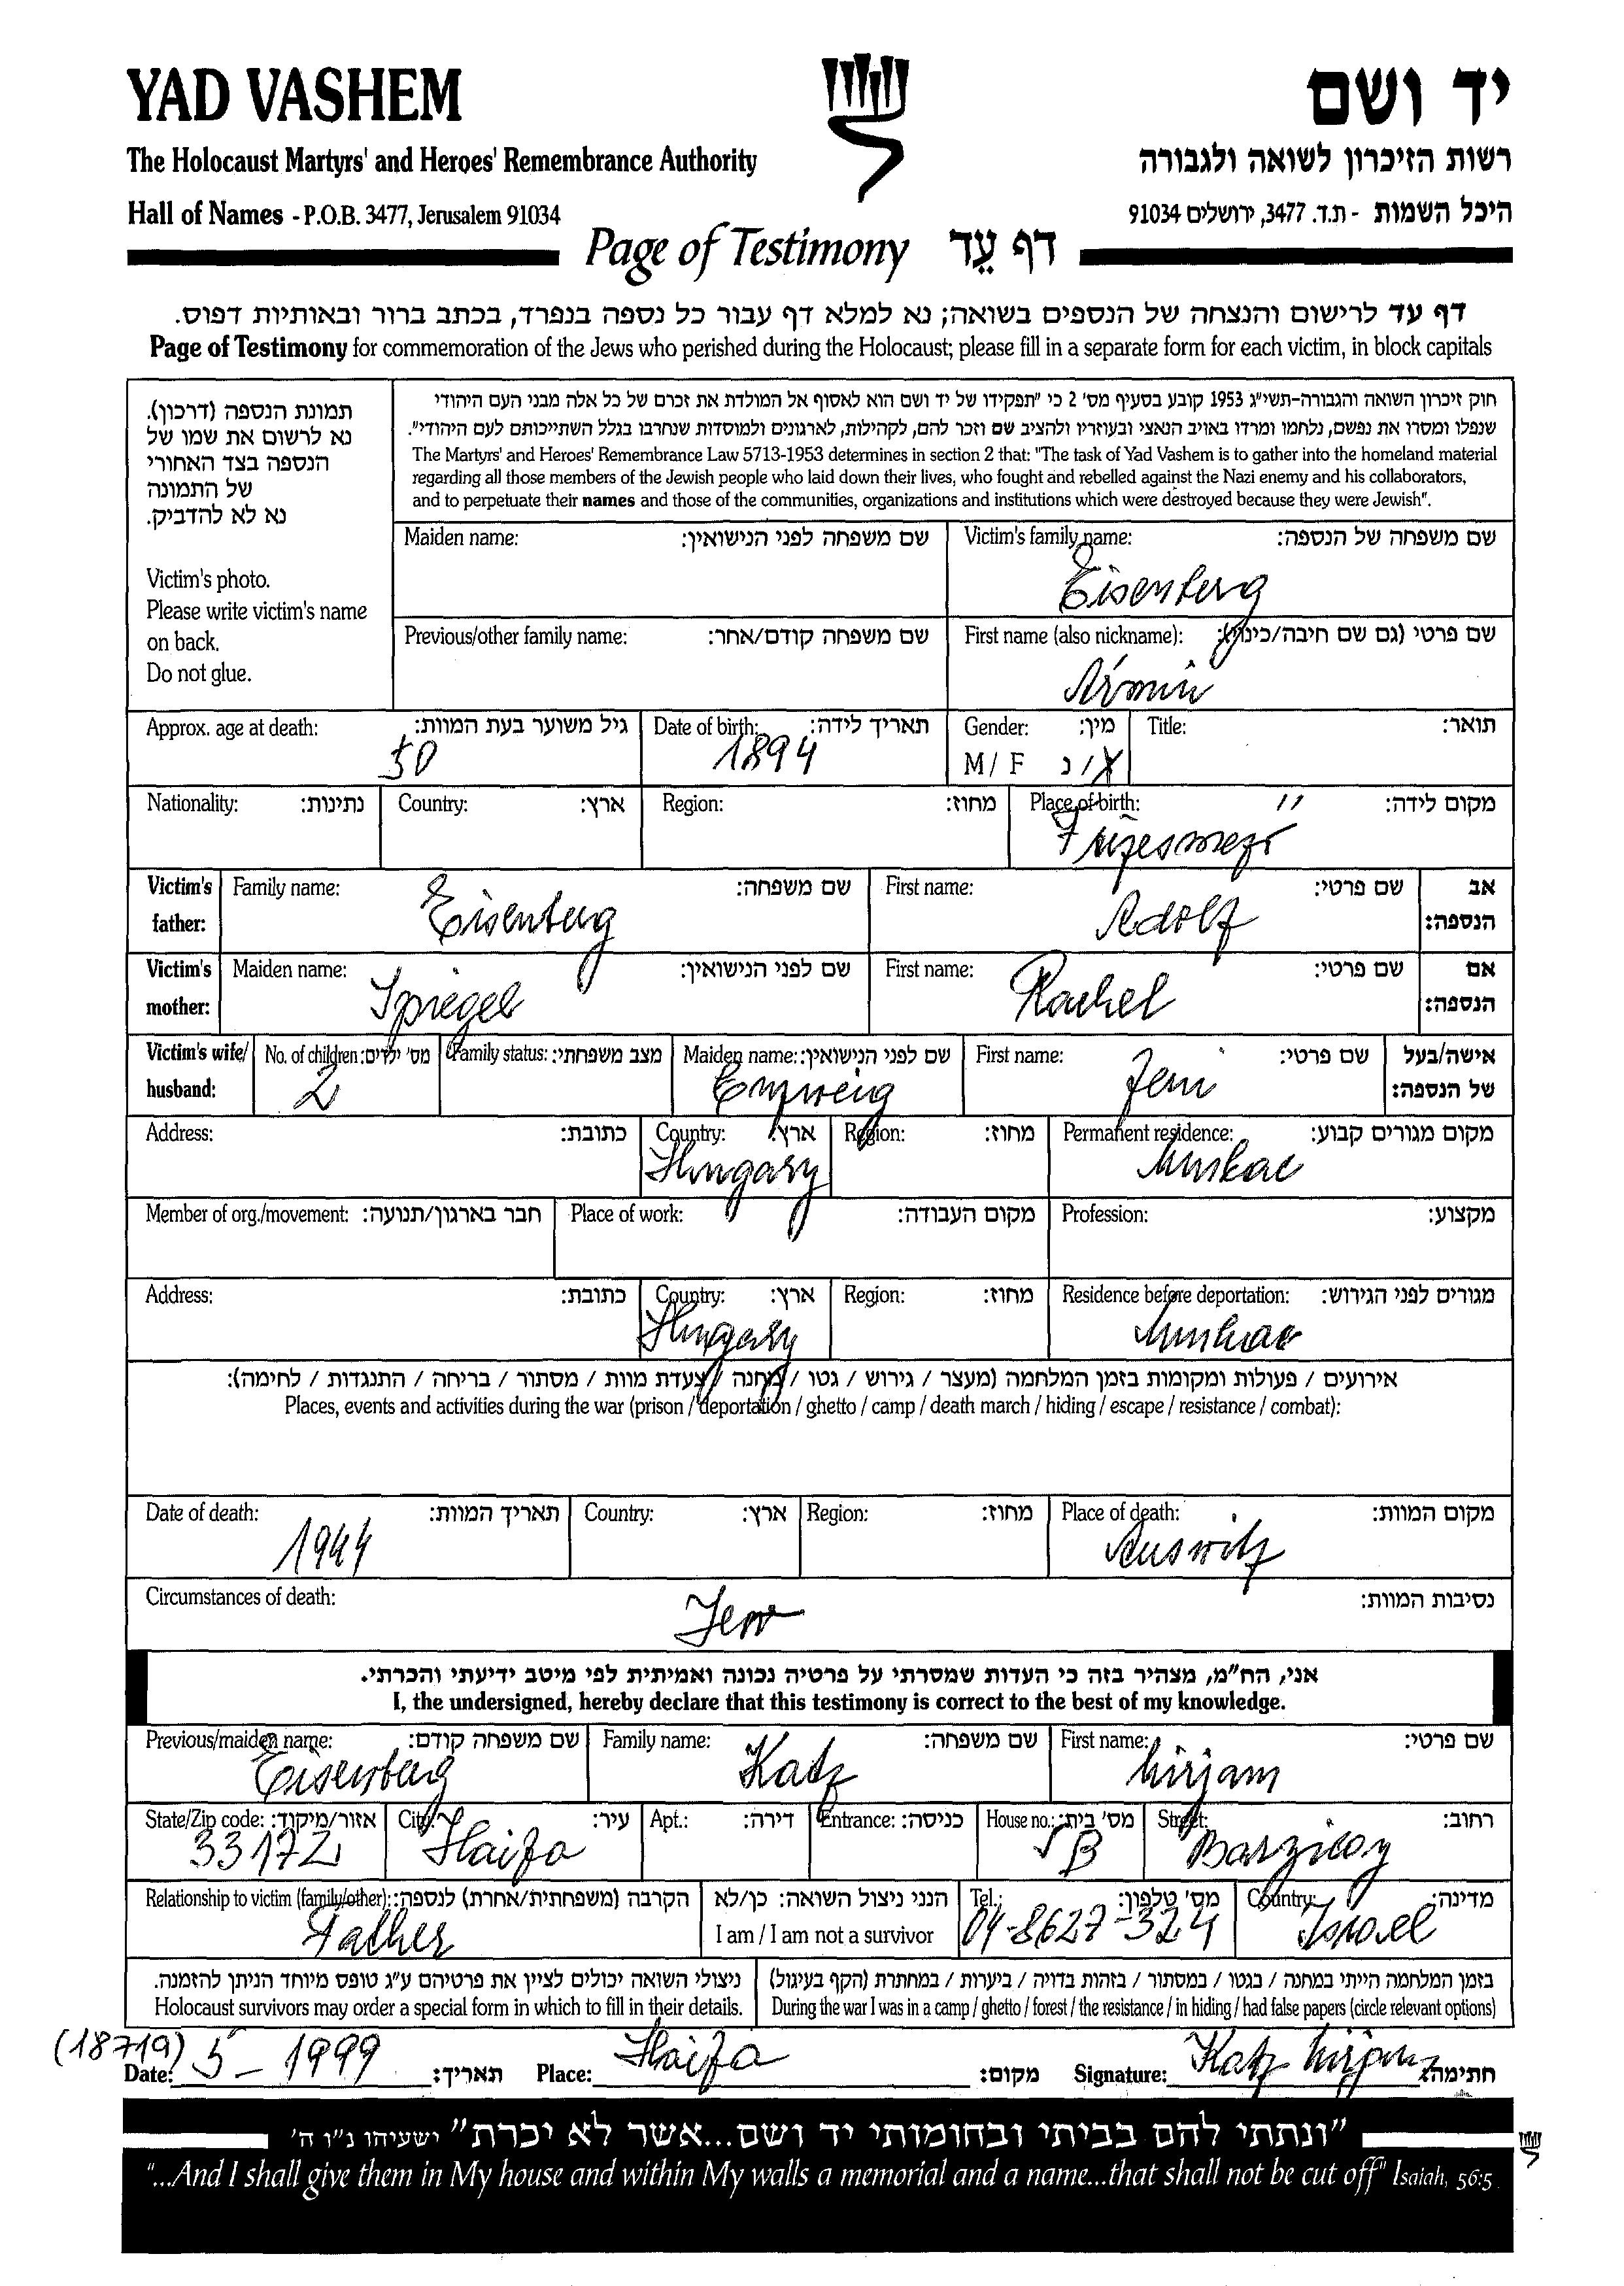 YAD VASHEM
יד ושם
The Holocaust Martyrs' and Heroes' Remembrance Authority
רשות הזיכרון לשואה ולגבורה
Hall of Names - P.O.B. 3477, Jerusalem 91034
היכל השמות - ת.ד. 3477, ירושלים 91034
Page of Testimony דף עֵד
דף עד לרישום והנצחה של הנספים בשואה; נא למלא דף עבור כל נספה בנפרד, בכתב ברור ובאותיות דפוס.
Page of Testimony for commemoration of the Jews who perished during the Holocaust; please fill in a separate form for each victim, in block capitals
תמונת הנספה (דרכון).
נא לרשום את שמו של
הנספה בצד האחורי
של התמונה
נא לא להדביק.
Victim's photo.
Please write victim's name
on back.
Do not glue.
חוק זיכרון השואה והגבורה-תשי"ג 1953 קובע בסעיף מס' 2 כי "תפקידו של יד ושם הוא לאסוף אל המולדת את זכרם של כל אלה מבני העם היהודי
שנפלו ומסרו את נפשם, נלחמו ומרדו באויב הנאצי ובעוזריו ולהציב שם וזכר להם, לקהילות, לארגונים ולמוסדות שנחרבו בגלל השתייכותם לעם היהודי".
The Martyrs' and Heroes' Remembrance Law 5713-1953 determines in section 2 that: "The task of Yad Vashem is to gather into the homeland material
regarding all those members of the Jewish people who laid down their lives, who fought and rebelled against the Nazi enemy and his collaborators,
and to perpetuate their names and those of the communities, organizations and institutions which were destroyed because they were Jewish".
Maiden name: שם משפחה לפני הנישואין:
Victim's family name: שם משפחה של הנספה:
Eisenberg
Previous/other family name: שם משפחה קודם/אחר:
First name (also nickname): שם פרטי (גם שם חיבה/כינוי):
Ármin
Approx. age at death: גיל משוער בעת המוות:
50
Date of birth: תאריך לידה:
1894
Gender: מין:
M / F ז / נ
Title: תואר:
Nationality: נתינות:
Country: ארץ:
Region: מחוז:
Place of birth: מקום לידה:
Victim's father: Family name: שם משפחה:
Eisenberg
First name: שם פרטי:
Adolf
אב הנספה:
Victim's mother: Maiden name: שם לפני הנישואין:
Spiegel
First name: שם פרטי:
Rachel
אם הנספה:
Victim's wife/ husband: No. of children: מס' ילדים:
2
Family status: מצב משפחתי:
Maiden name: שם לפני הנישואין:
First name: שם פרטי:
Jeni
אישה/בעל של הנספה:
Address: כתובת:
Country: ארץ:
Hungary
Region: מחוז:
Permanent residence: מקום מגורים קבוע:
Munkac
Member of org./movement: חבר בארגון/תנועה:
Place of work: מקום העבודה:
Profession: מקצוע:
Address: כתובת:
Country: ארץ:
Hungary
Region: מחוז:
Residence before deportation: מגורים לפני הגירוש:
Munkac
אירועים / פעולות ומקומות בזמן המלחמה (מעצר / גירוש / גטו / מחנה / צעדת מוות / מסתור / בריחה / התנגדות / לחימה):
Places, events and activities during the war (prison / deportation / ghetto / camp / death march / hiding / escape / resistance / combat):
Date of death: תאריך המוות:
1944
Country: ארץ:
Region: מחוז:
Place of death: מקום המוות:
Auswitz
Circumstances of death: נסיבות המוות:
Jew
אני, הח"מ, מצהיר בזה כי העדות שמסרתי על פרטיה נכונה ואמיתית לפי מיטב ידיעתי והכרתי.
I, the undersigned, hereby declare that this testimony is correct to the best of my knowledge.
Previous/maiden name: שם משפחה קודם:
Eisenberg
Family name: שם משפחה:
Katz
First name: שם פרטי:
Mirjam
State/Zip code: אזור/מיקוד:
33172
City: עיר:
Haifa
Apt.: דירה:
Entrance: כניסה:
House no.: מס' בית:
Street: רחוב:
Barzilay
Relationship to victim (family/other): הקרבה (משפחתית/אחרת) לנספה:
Father
הנני ניצול השואה: כן/לא
I am / I am not a survivor
Tel.: מס' טלפון:
04-8627-324
Country: מדינה:
Israel
ניצולי השואה יכולים לציין את פרטיהם ע"ג טופס מיוחד הניתן להזמנה.
Holocaust survivors may order a special form in which to fill in their details.
בזמן המלחמה הייתי במחנה / בגטו / במסתור / בזהות בדויה / ביערות / במחתרת (הקף בעיגול)
During the war I was in a camp / ghetto / forest / the resistance / in hiding / had false papers (circle relevant options)
(18719)
Date: 5 - 1999 תאריך:
Place: Haifa מקום:
Signature: Katz Mirjam חתימה:
"ונתתי להם בביתי ובחומותי יד ושם...אשר לא יכרת" ישעיהו נ"ו ה'
"...And I shall give them in My house and within My walls a memorial and a name...that shall not be cut off" Isaiah, 56:5